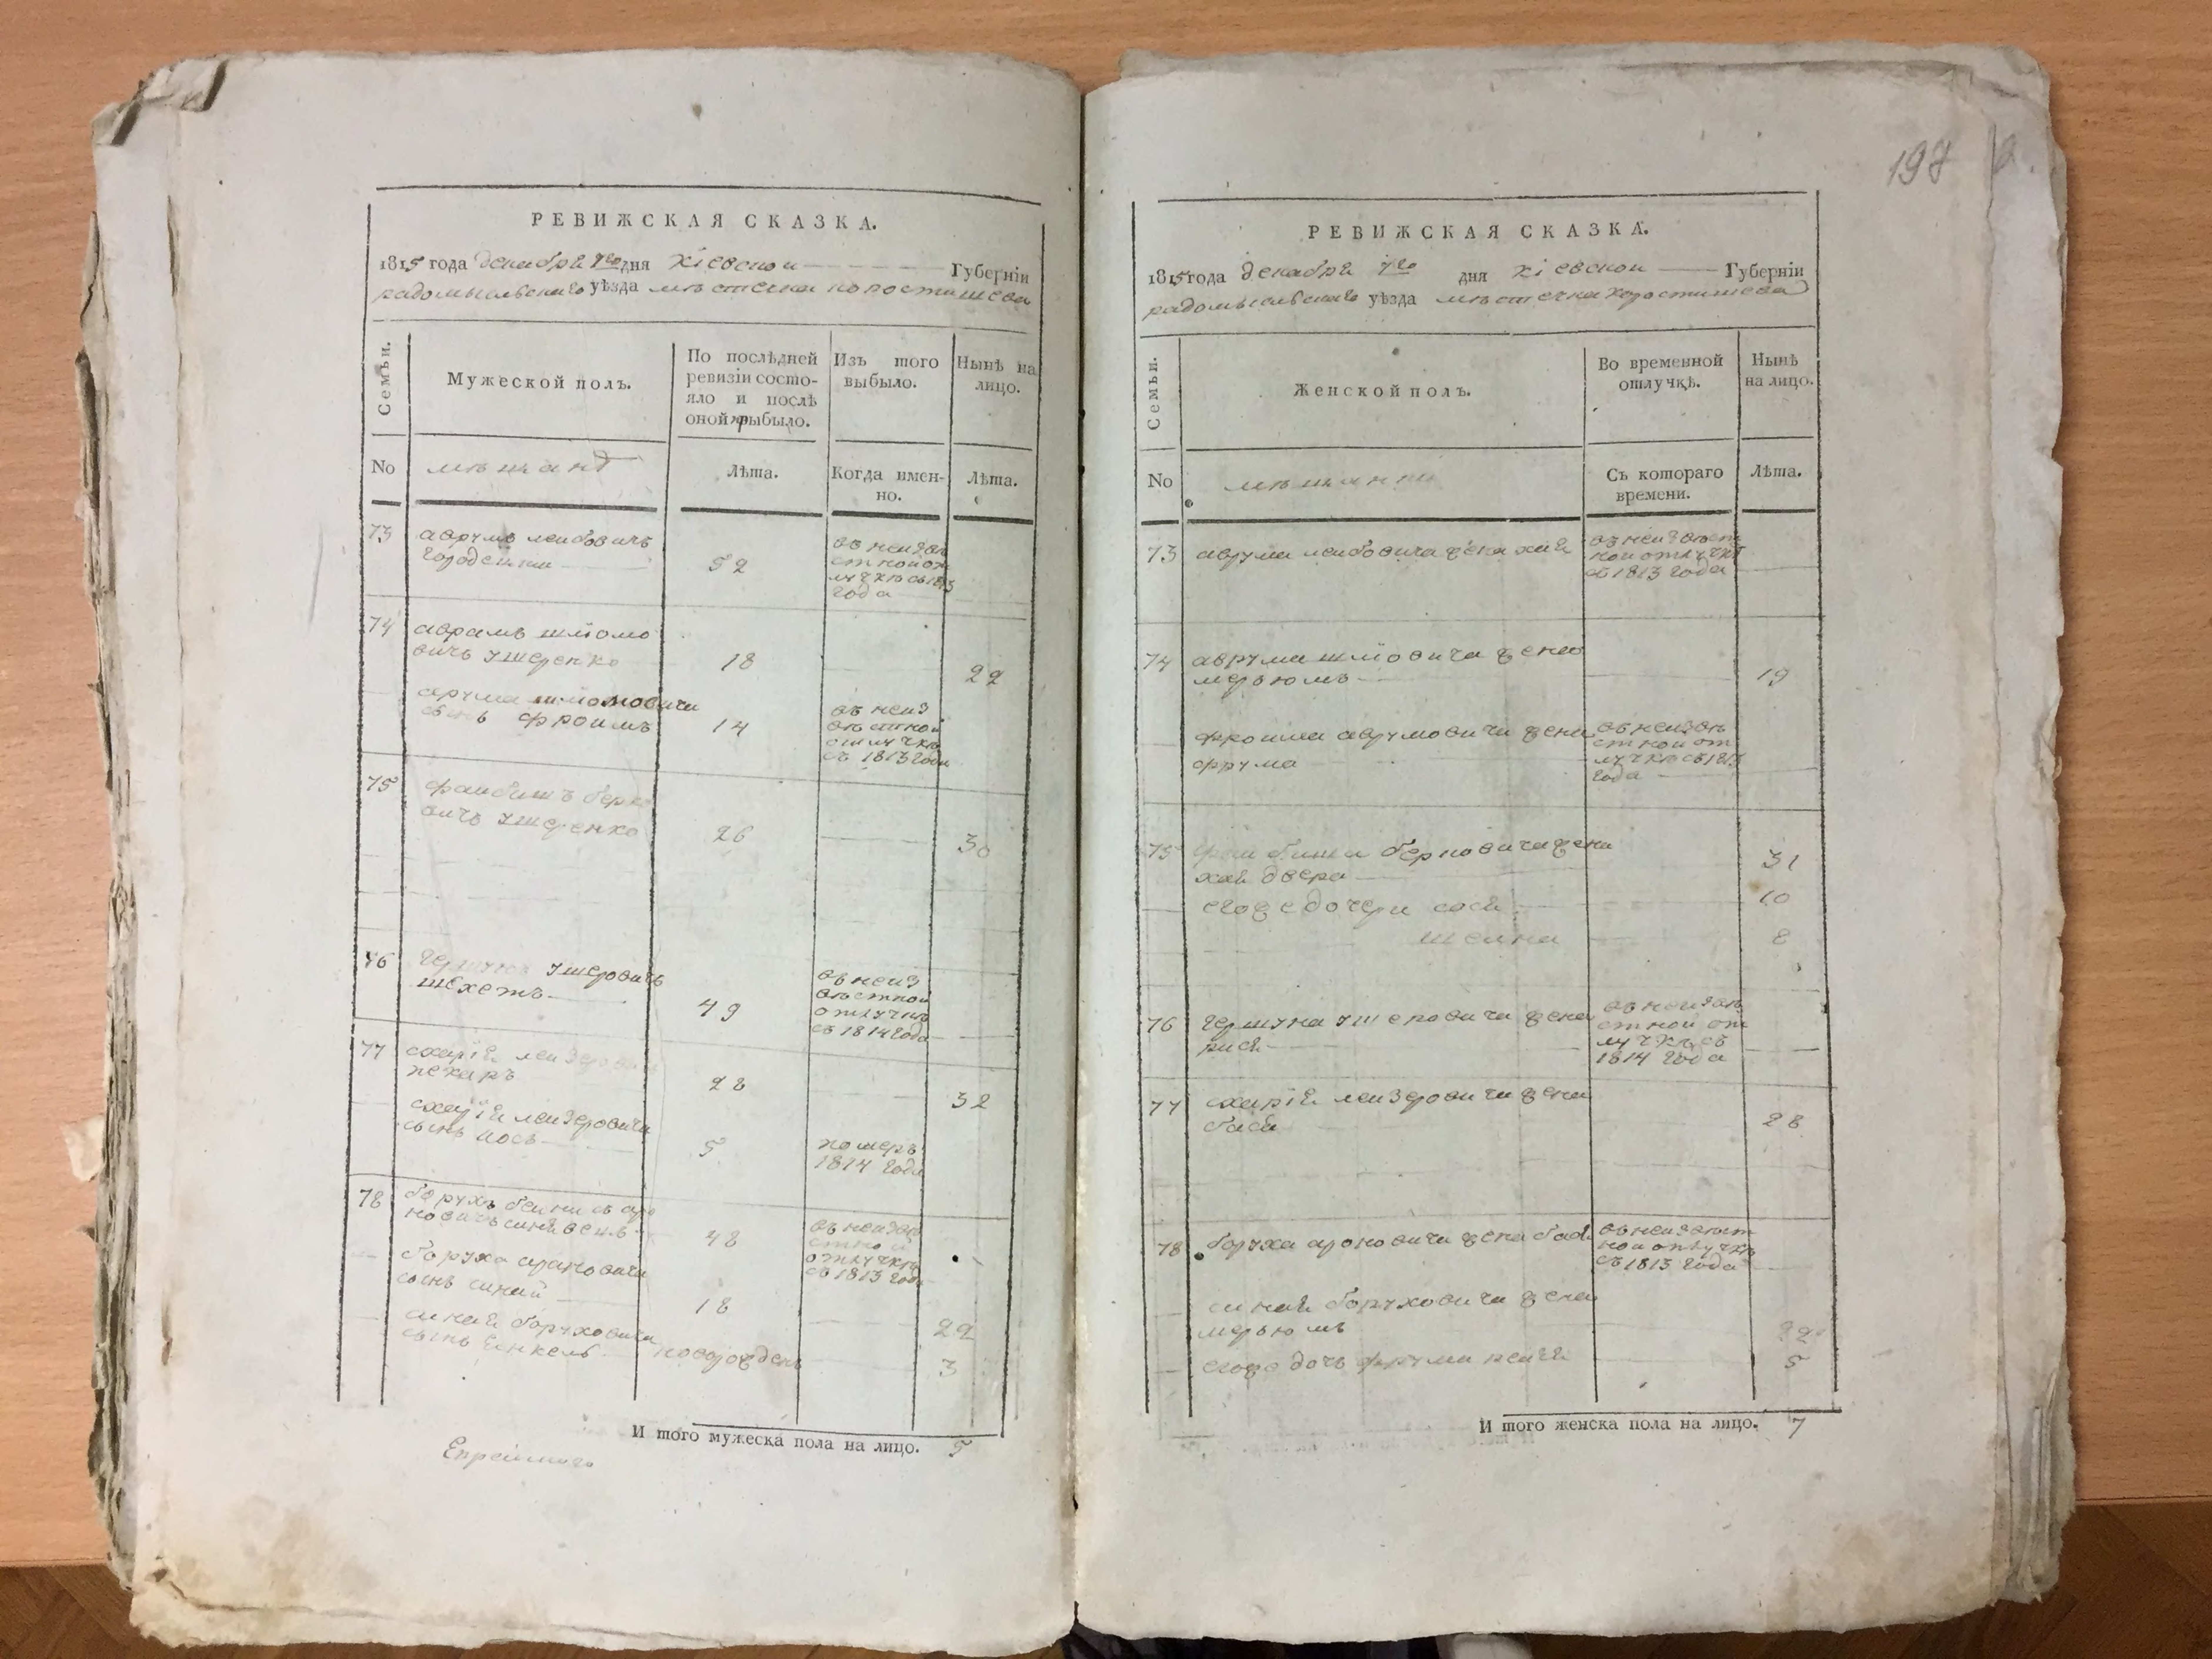 РЕВИЖСКАЯ СКАЗКА.
1815 года декабря 7го дня кіевской Губерніи
радомысльского уѣзда мѣстечка коростишева
Семьи.
Мужеской полъ.
По послѣдней
ревизіи состо-
яло и послѣ
оной прыбыло.
Изъ того
выбыло.
Нынѣ на
лицо.
No
мѣщанъ
Лѣта.
Когда имен-
но.
Лѣта.
73 аврумъ леибовичъ
городецки 52
въ неизвѣ
стной от
лучкѣ съ 1813
года
74 аврамъ шліомо
вичъ ушеренко 18 22
аврума шліомовича
сынъ фроимъ 14
въ неиз
вѣстной
отлучкѣ
съ 1813 года
75 фаибишъ берко
вичъ ушеренко 26 30
76 гершунъ ушеровичъ
шехетъ 49
въ неиз
вѣстной
отлучкѣ
съ 1814 года
77 схарія леизерович
пекаръ 28 32
схарія леизеровича
сынъ іосъ 5
померъ
1814 года
78 борухъ бениисъ аро
новичъ 48
въ неизвѣ
стной
отлучкѣ
съ 1813 года
боруха ароновича
сынъ синай 18 22
синая боруховича
сынъ янкель новорожденъ 3
И того мужеска пола на лицо. 5
197
РЕВИЖСКАЯ СКАЗКА.
1815 года декабря 7го дня кіевской Губерніи
радомысльского уѣзда мѣстечка коростишева
Семьи.
Женской полъ.
Во временной
отлучкѣ.
Нынѣ
на лицо.
No
мѣщанки
Съ котораго
времени.
Лѣта.
73 аврума леибовича жена хая
въ неизвѣст
ной отлучкѣ
съ 1813 года
74 аврума шліовича жена
меръюмъ 19
фроима аврумовича жена
фрума
въ неизвѣ
стной от
лучкѣ съ 1813
года
75 фаибиша берковича жена
хая двера 31
егоже дочери сося 10
шеина 8
76 гершуна ушеровича жена
рися
въ неизвѣ
стной от
лучкѣ съ
1814 года
77 схарія леизеровича жена
бася 28
78 боруха ароновича жена бася
въ неизвѣст
ной отлучкѣ
съ 1813 года
синая боруховича жена
меръюмъ 22
егоже дочь фрума 5
И того женска пола на лицо. 7